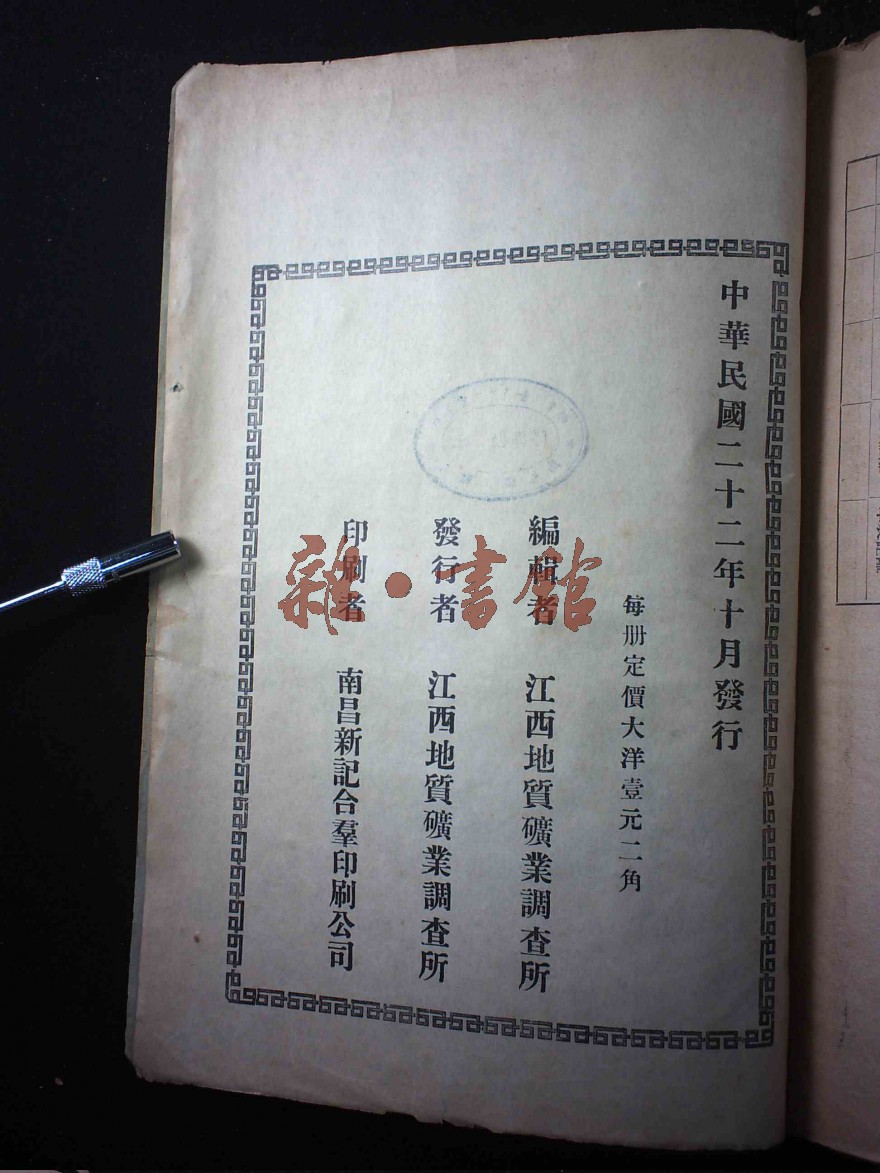 中華民國二十二年十月發行
每册定價大洋壹元二角
編輯者 江西地質礦業調查所
發行者 江西地質礦業調查所
印刷者 南昌新記合羣印刷公司
雜·書館